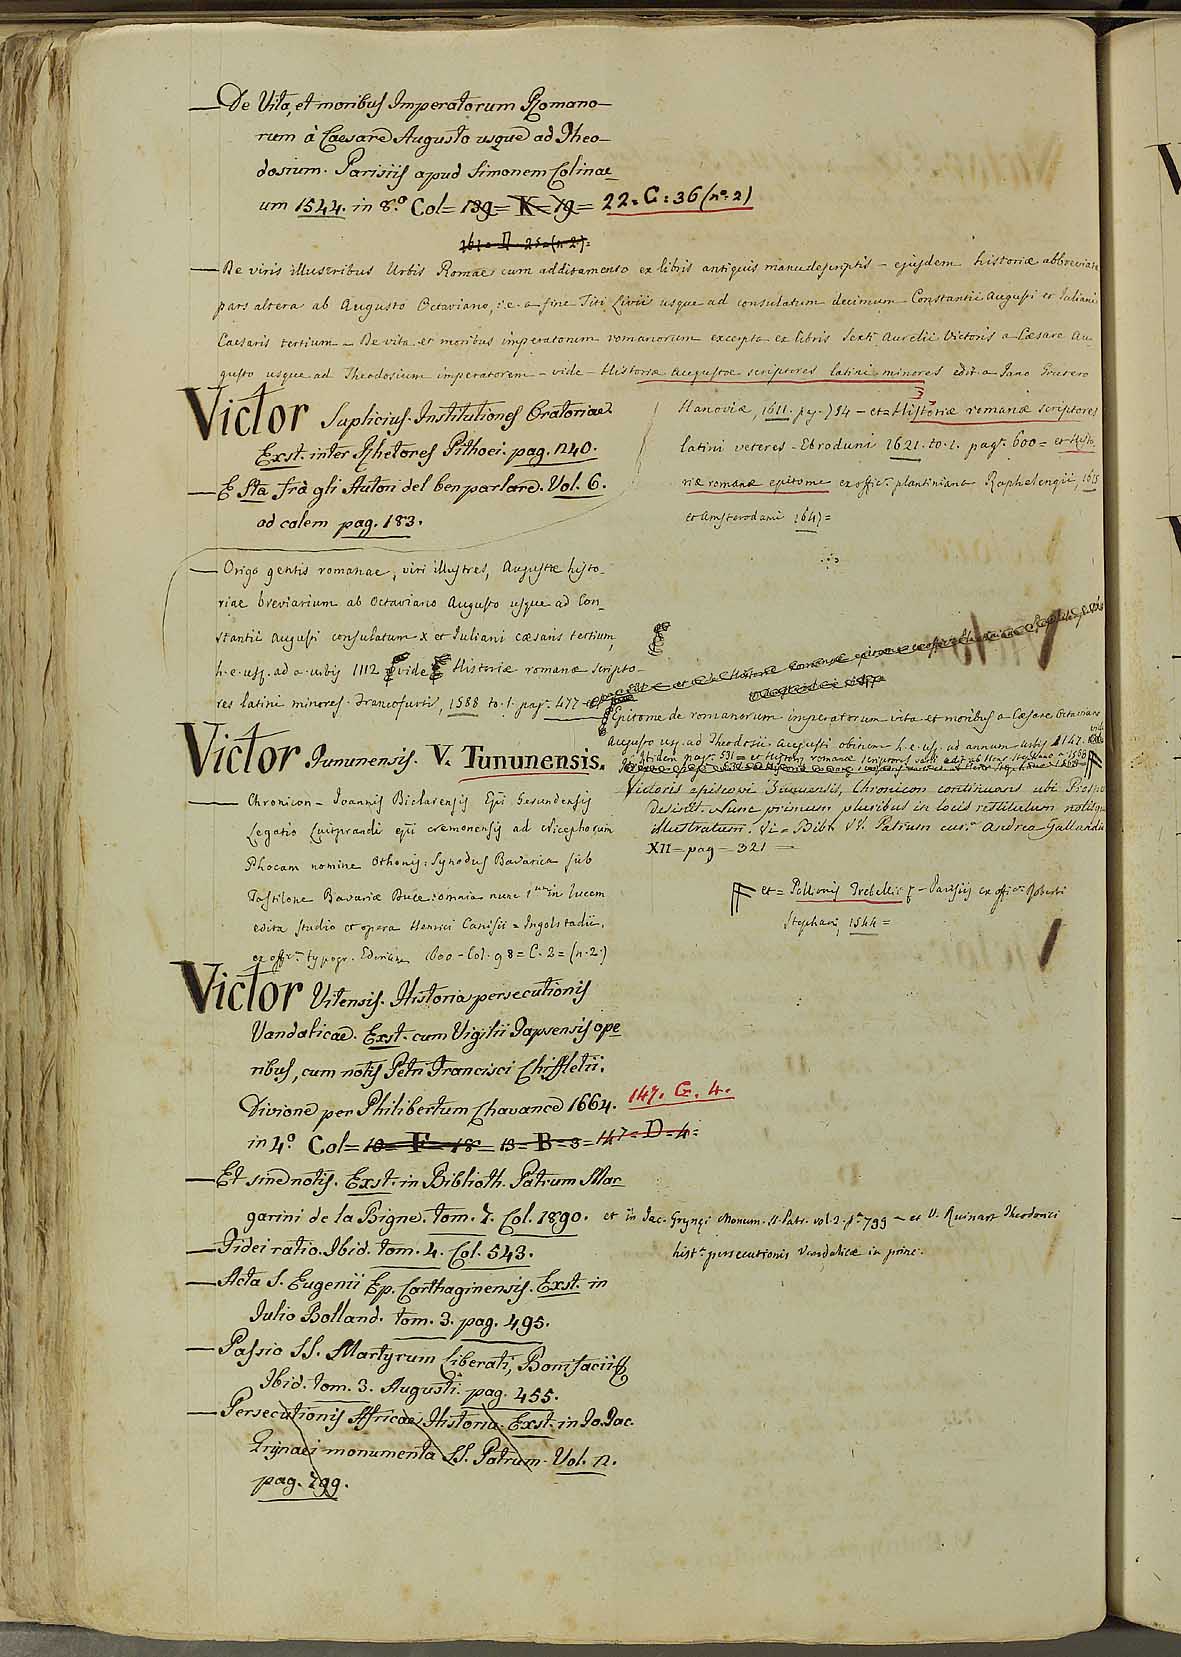 — De Vita, et moribus Imperatorum Romano-
rum à Caesare Augusto usque ad Theo-
dosium. Parisiis apud Simonem Colinae
um 1544. in 8.º Col= 139= K= 19= 22. C: 36 (nº. 2)
161= D 25=(n 2)=
— De viris illustribus Urbis Romae cum additamento ex libris antiquis manudescriptis – ejusdem historiæ abbreviatæ
pars altera ab Augusto Octaviano, i.e. a fine Titi Livii usque ad consulatum decimum Constantii Augusti et Iuliani
Caesaris tertium – De vita et moribus imperatorum romanorum excerpta ex libris Sexti Aurelii Victoris a Cæsare Au
gusto usque ad Theodosium imperatorem – vide – Historiæ augustæ scriptores latini minores edit. a Jano Grutero
Hanoviæ, 1611. pg. 754 – et= Historiæ romanæ scriptores
latini veteres – Ebroduni 1621. to. 1. pag. 600 = et Histo.
riæ romanæ epitome ex offic. plantiniana Raphelengii, 1615
et Amsterodami 1647=
Victor Suplicius. Institutiones Oratoriae.
Exst. inter Rhetores Pithoei. pag. 240.
— E Sta fra gli Autori del ben parlare. Vol. 6.
ad calem pag. 183.
— Origo gentis romanae, viri illustres, Augustæ histo-
riae breviarium ab Octaviano Augusto usque ad Con_
stantii Augusti consulatum x et Iuliani cæsaris tertium,
h.e. usq. ad a. urbis 1112 vide Historiæ romanæ scripto-
res latini minores. Francofurti, 1588 to. 1. pag. 477
Epitome de romanorum imperatorum vita et moribus a Cæsare Octaviano
Augusto usq. ad Theodosii Augusti obitum h.e. usq. ad annum urbis 1147. vide
Ibidem pag. 531 = et Historiæ romanæ scriptores varii edit. ab Henr. Stephano = 1568
Victor Tununensis. V. Tunnunensis.
— Chronicon – Joannis Biclarensis Epi Gerundensis
Legatio Luitprandi epi cremonensis ad Nicephorum
Phocam nomine Othonis: Synodus Bavarica sub
Tassilone Bavariæ Duce: omnia nunc 1um in lucem
edita studio et opera Henrici Canisii = Ingolstadii,
ex offic. typogr. Ederiana 1600 – Col. 98= C. 2= (n. 2.)
Victoris episcopi Tunnunensis, Chronicon continuans ubi Prosper
Desinit. Nunc primum pluribus in locis restitutum notisque
illustratum. Vi= Bibl. VV. Patrum cur. Andrea Gallandii
XII – pag – 321 =
et = Pollionis Trebellii – Parisiis ex offic. Roberti
Stephani, 1544 =
Victor Vitensis. Historia persecutionis
Vandalicae. Exst. cum Vigilii Tapsensis ope
ribus, cum notis Petri Francisci Chiffletii.
Divione per Philibertum Chavance 1664. 147. G. 4.
in 4.º Col= 18= F= 18= 13= B= 3= 147= D= 4=
— Et sine notis. Exst. in Biblioth. Patrum Mar_
garini de la Bigne. tom. 7. Col. 1890. et in Jac. Grynęi Monum. SS. Patr. vol. 2. p. 799 – et V. Ruinart Theodorici
hist. persecutionis Vandalicæ in princ.
— Fidei ratio. Ibid. tom. 4. Col. 543.
— Acta S. Eugenii Ep. Carthaginensis. Exst. in
Iulio Bolland. tom. 3. pag. 495.
— Passio SS. Martyrum Liberati, Bonifacii &
Ibid. tom. 3. Augusti. pag. 455.
— Persecutionis Affricae Historia. Exst. in Jo. Jac.
Grijnaei monumenta SS. Patrum. Vol. 2.
pag. 799.